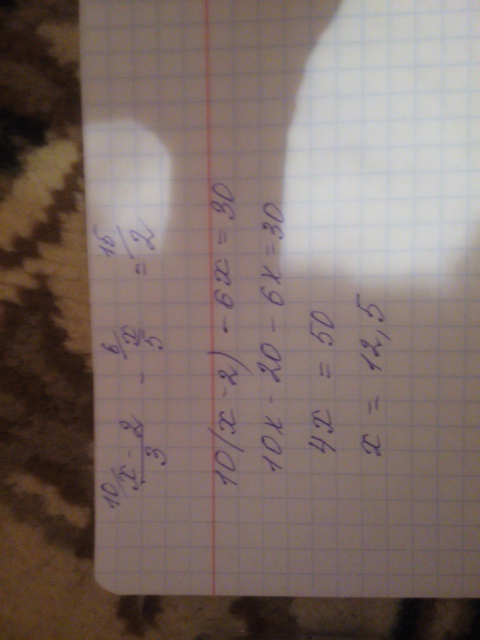 10/ (x - 2)/3 - 6/ x/5 = 15/ 2
10(x - 2) - 6x = 30
10x - 20 - 6x = 30
4x = 50
x = 12,5